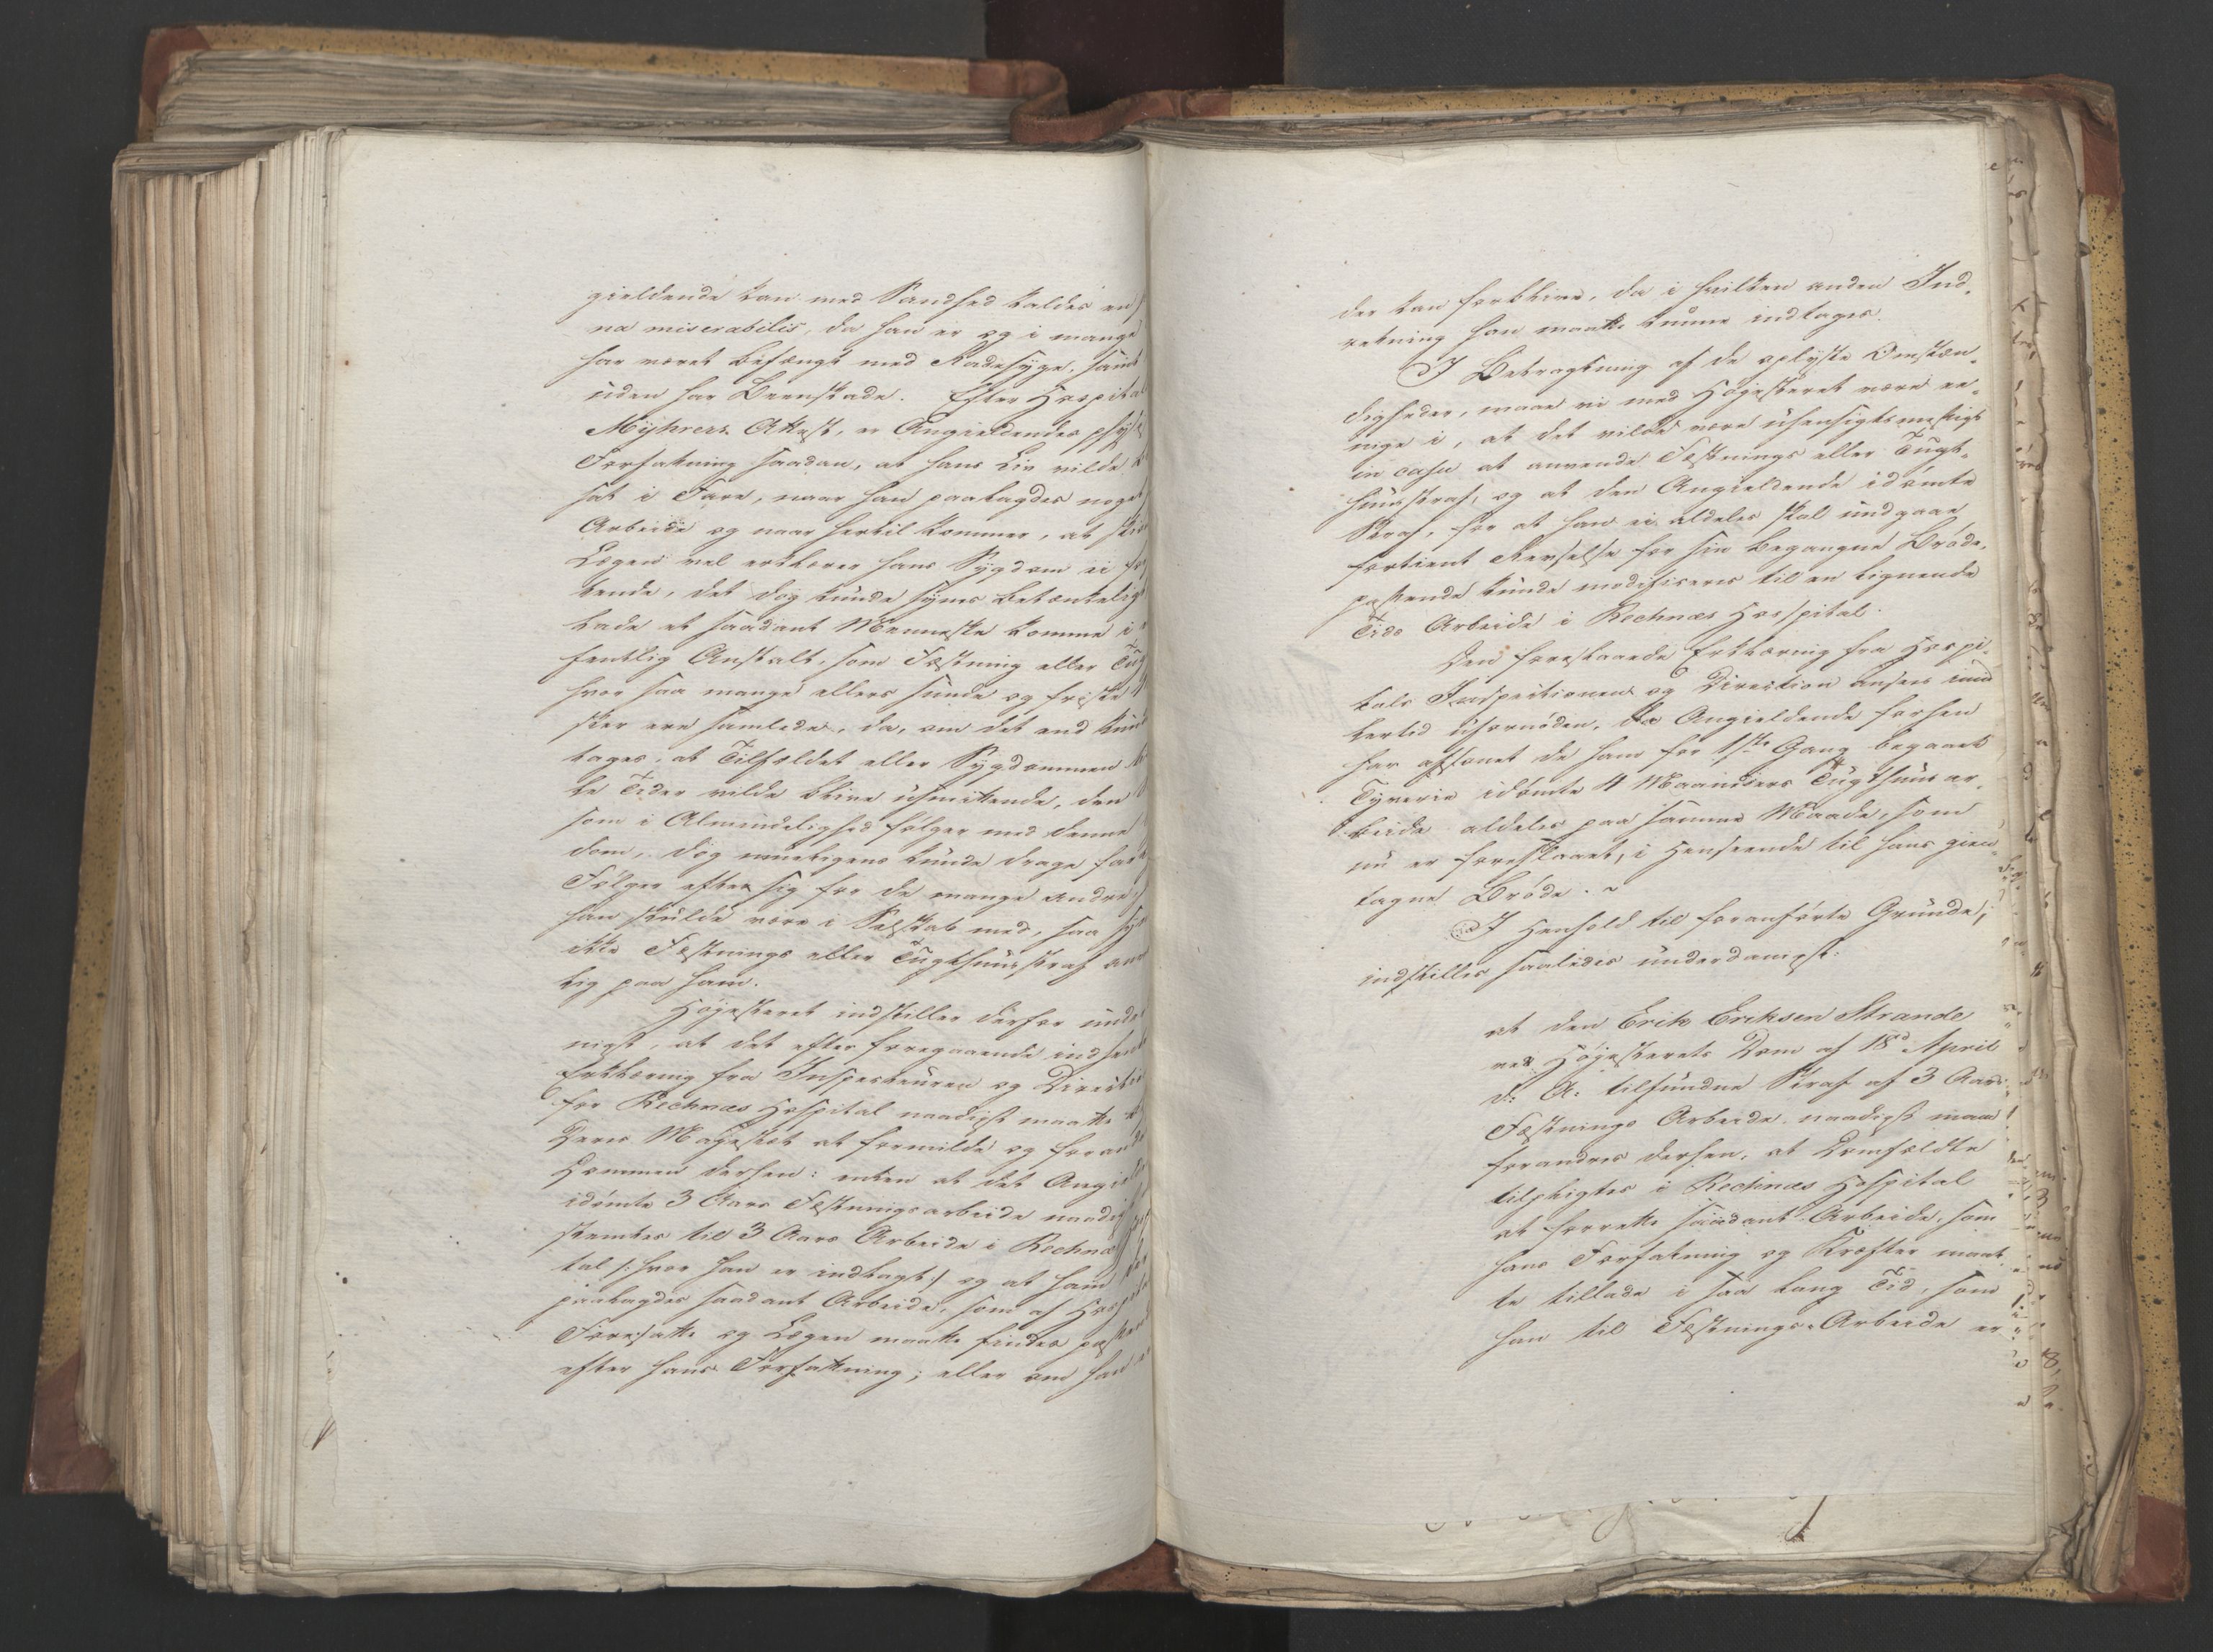 gieldende kan med Sandhed kaldes en
na miserabilis, da han er og i mange
har været befængt med Radesyge, samt
uden har Beenskade. Efter Hospital
Myhrers Attest, er Angieldendes phys
Forfatning saadan, at hans Liv vilde
sat i Fare, naar han paalagdes noget
Arbeide og naar hertil kommer, at
Lægen vel erklærer hans Sygdom ei
tende, det dog kunde synes betænkelig
lade et saadant Menneske komme i
fentlig Anstalt, som Fæstning eller Tug
hvor saa mange ellers sunde og friske
sker ere samlede, da, om det end kun
tages, at Tilfældet eller Sygdommen
le Tider vilde blive usmittende, den
som i Almindelighed følger med denne
dom, dog mueligens kunde drage
Følger efter sig for de mange andre,
han skulde være i Selskab med, saa
ikke Fæstnings eller Tugthuusstraf
lig paa ham.
Høyesteret indstiller derfor under
nigst, at det efter foregaaende indhent
Erklæring fra Inspecteuren og Direct
for Rechnæs Hospital naadigst maatte
Deres Majestæt at formilde og foran
Dommen derhen: enten at det Angield
idømte 3 Aars Fæstningsarbeide naadig
stemtes til 3 Aars Arbeide i Rechnæs
tal /: hvor han er indlagt :/ og at ham der
paalagdes saadant Arbeide, som af Hosp
Foresatte og Lægen maatte findes passende
efter hans Forfatning; eller om han
der kan forblive, da i hvilken anden Ind,
retning han maatte kunne indtages.
I Betragtning af de oplyste Omstæn,
digheder, maae vi med Høyesteret være ee,
nige i, at det vilde være uhensigtsmessigt
in casu at anvende Fæstnings eller Tugt,
huusstraf, og at den Angieldende idømte
Straf, for at han ei aldeles skal undgaae
fortient Revselse for sin begangne Brøde,
passende kunde modificeres til en lignende
Tids Arbeide i Rechnæs Hospital.
Den forestaaende Erklæring fra Hospi,
tals Inspectionen og Direction ansees imid
lertid ufornøden, da Angieldende forhen
har afsonet de ham for 1ste Gang begaaet
Tyverie idømte 4 Maaneders Tugthuusar,
beide aldeles paa samme Maade, som
nu er foreslaaet, i Henseende til hans gien,
tagne Brøde. ~
I Henhold til foranførte Grunde,
indstilles saaledes underdanigst:
at den Erik Eriksen Strande
ved Høyesterets Dom af 18d April
d: A: tilfundne Straf af 3 Aars
Fæstnings Arbeide, naadigst maa
forandres derhen, at Domfældte
tilpligtes i Rechnæs Hospital
at forrette saadant Arbeide, som
hans Forfatning og Kræfter maat,
te tillade i saa lang Tid, som
han til Fæstnings-Arbeide er